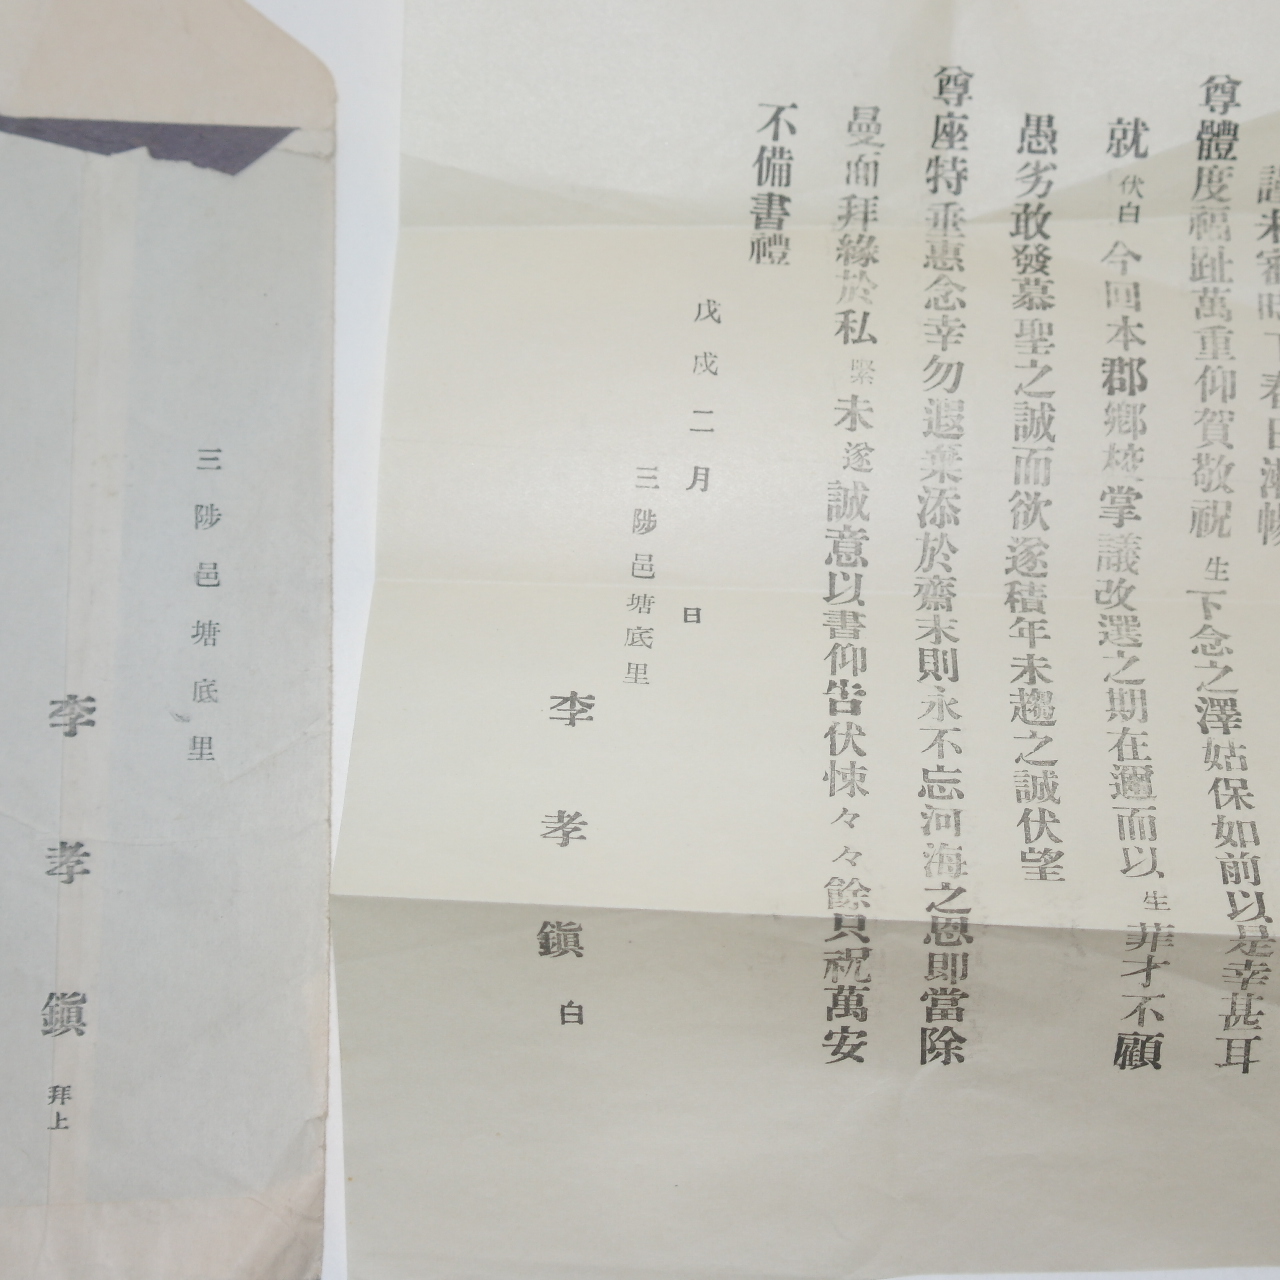 謹未審時下春日漸暢
尊體度福趾萬重仰賀敬祝生下念之澤姑保如前以是幸甚耳
就伏白今回本郡鄉校掌議改選之期在邇而以生菲才不顧
愚劣敢發慕聖之誠而欲遂積年未趨之誠伏望
尊座特垂惠念幸勿遐棄添於齋末則永不忘河海之恩即當除
曼面拜緣於私緊未遂誠意以書仰告伏悚々々餘只祝萬安
不備書禮
戊戌二月 日
三陟邑塘底里
李孝鎭 白
三陟邑塘底里
李孝鎭 拜上